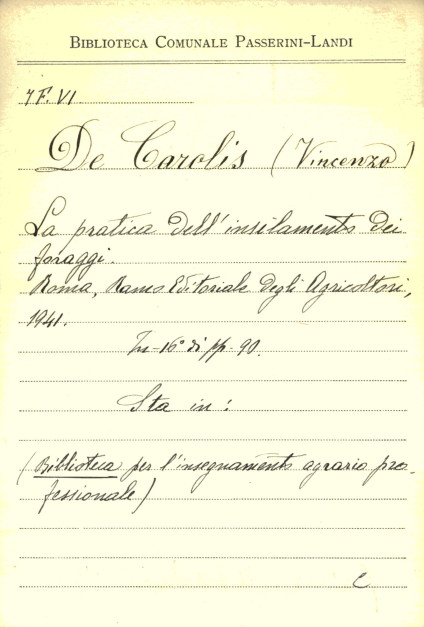 BIBLIOTECA COMUNALE PASSERINI-LANDI
7 F. VI
De Carolis (Vincenzo)
La pratica dell'insilamento dei
foraggi.
Roma, Ramo Editoriale degli Agricoltori,
1941.
In-16° di pp. 90.
Sta in:
(Biblioteca per l'insegnamento agrario pro-
fessionale)
C